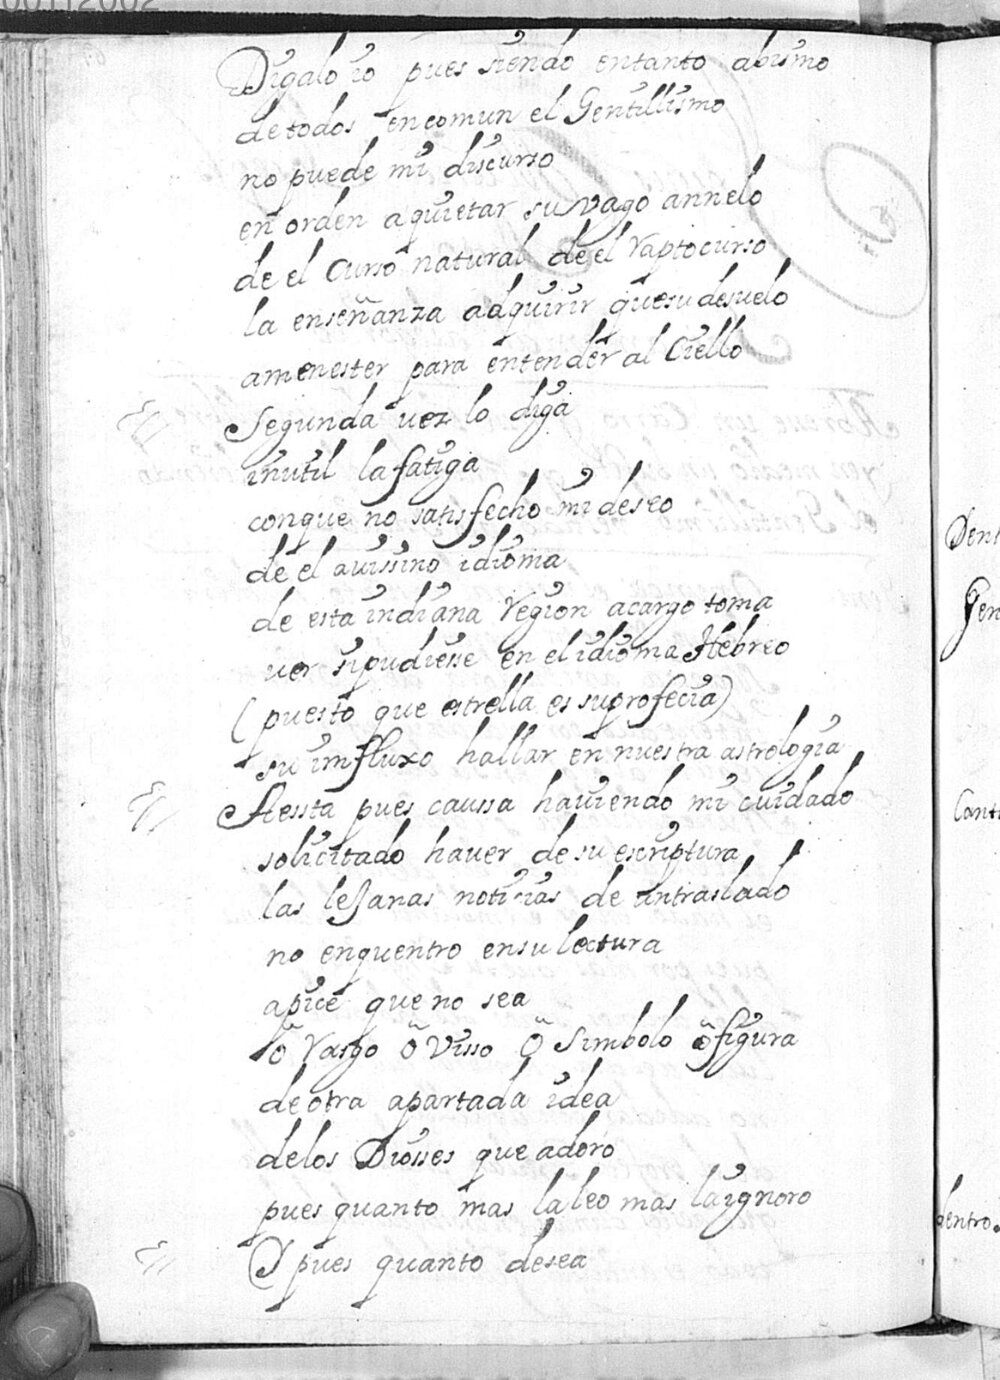 00112002
Digalo io pues siendo entanto abismo
de todos en comun el Gentillismo
no puede mi discurso
en orden aquietar su vago annelo
de el Curso natural de el raptocurso
la enseñanza adquirir quesu desvelo
amenester para entender al Ciello
Segunda vez lo diga
inutil la fatiga
conque no satisfecho mi deseo
de el avissino idioma
de esta indiana Region acargo toma
ver sipudiesse en el idioma Hebreo
(puesto que estrella es suprofecia)
su imfluxo hallar en nuestra astrologia
Aessta pues caussa haviendo mi cuidado
solicitado haver de su escriptura
las leJanas noticias de untraslado
no enquentro ensu lectura
apice que no sea
õ Rasgo õ Visso õ Simbolo õ figura
de otra apartada idea
delos Diosses que adoro
pues quanto mas la leo mas la ignoro
I pues quanto desea
Dent
Gen
Cant
dentro.